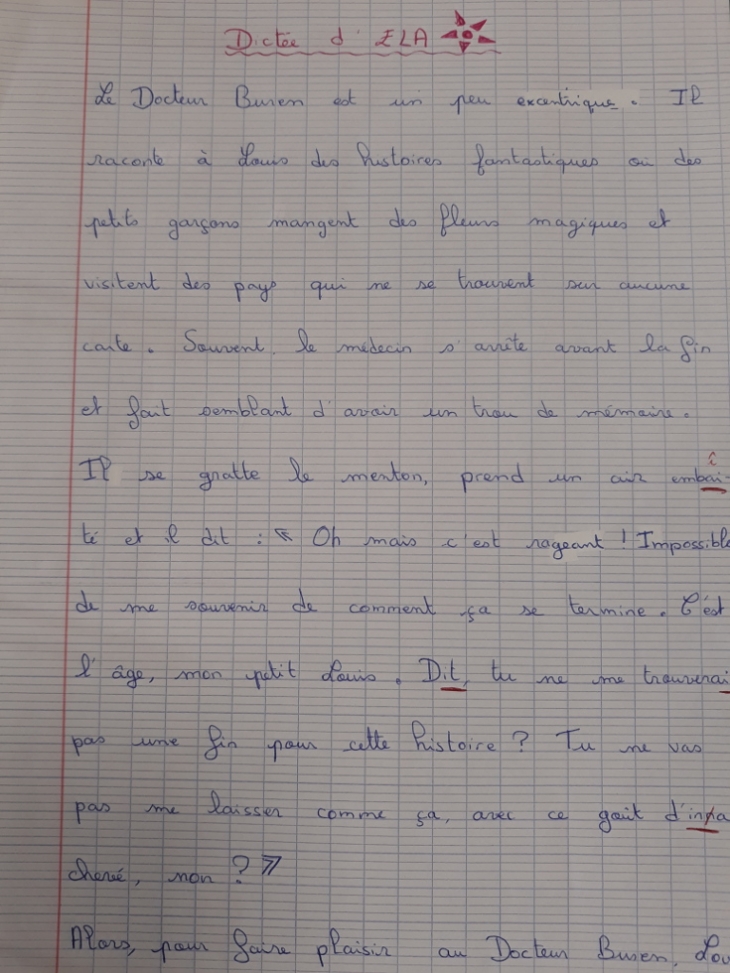 Dictée d' ELA
Le Docteur Buren est un peu excentrique. Il
raconte à Louis des histoires fantastiques où des
petits garçons mangent des fleurs magiques et
visitent des pays qui ne se trouvent sur aucune
carte. Souvent, le médecin s'arrête avant la fin
et fait semblant d'avoir un trou de mémoire.
Il se gratte le menton, prend un air embai-
té et il dit : « Oh mais c'est rageant ! Impossible
de me souvenir de comment ça se termine. C'est
l'âge, mon petit Louis. Dit, tu ne me trouverai
pas une fin pour cette histoire ? Tu ne vas
pas me laisser comme ça, avec ce goût d'inna
chevé, non ? »
Alors, pour faire plaisir au Docteur Buren, Lou